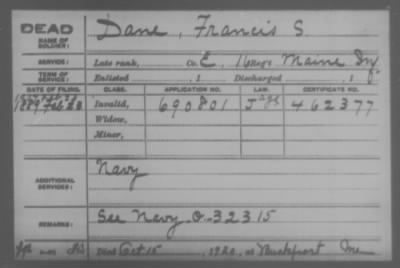 DEAD
NAME OF SOLDIER:
Dane, Francis S.
SERVICE:
Late rank, Co. E, 16 Reg't Maine Inf
TERM OF SERVICE:
Enlisted , 1 Discharged , 1
DATE OF FILING. CLASS. APPLICATION NO. LAW. CERTIFICATE NO.
1889 Feb 28 Invalid, 690801 462377
Widow,
Minor,
ADDITIONAL SERVICES:
Navy
REMARKS:
See Navy O-32315
Died Oct 15, 1920, at Buckport Me